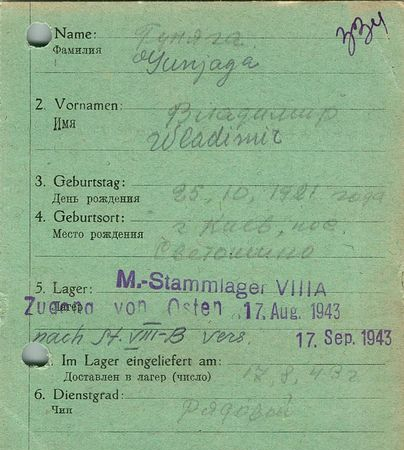 334
Name: Гуняга
Фамилия Gunjaga
2. Vornamen: Владимир
Имя Wladimir
3. Geburtstag: 25, 10, 1921 года
День рождения
4. Geburtsort: г Киев, пос.
Место рождения Святошино
5. Lager: M.-Stammlager VIIIA
Лагерь Zugang von Osten 17. Aug. 1943
nach St. VIII-B vers. 17. Sep. 1943
Im Lager eingeliefert am:
Доставлен в лагерь (число) 17, 8, 43 г
6. Dienstgrad:
Чин Рядовой